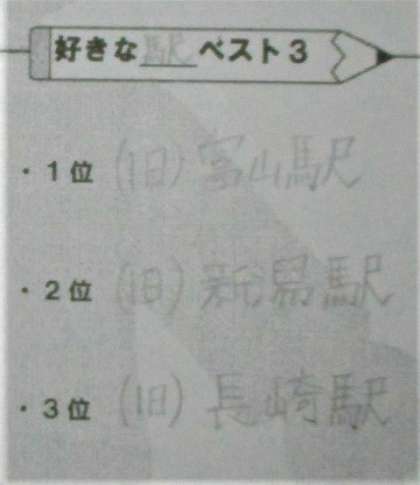 好きな駅ベスト3
・1位 (旧)富山駅
・2位 (旧)新潟駅
・3位 (旧)長崎駅